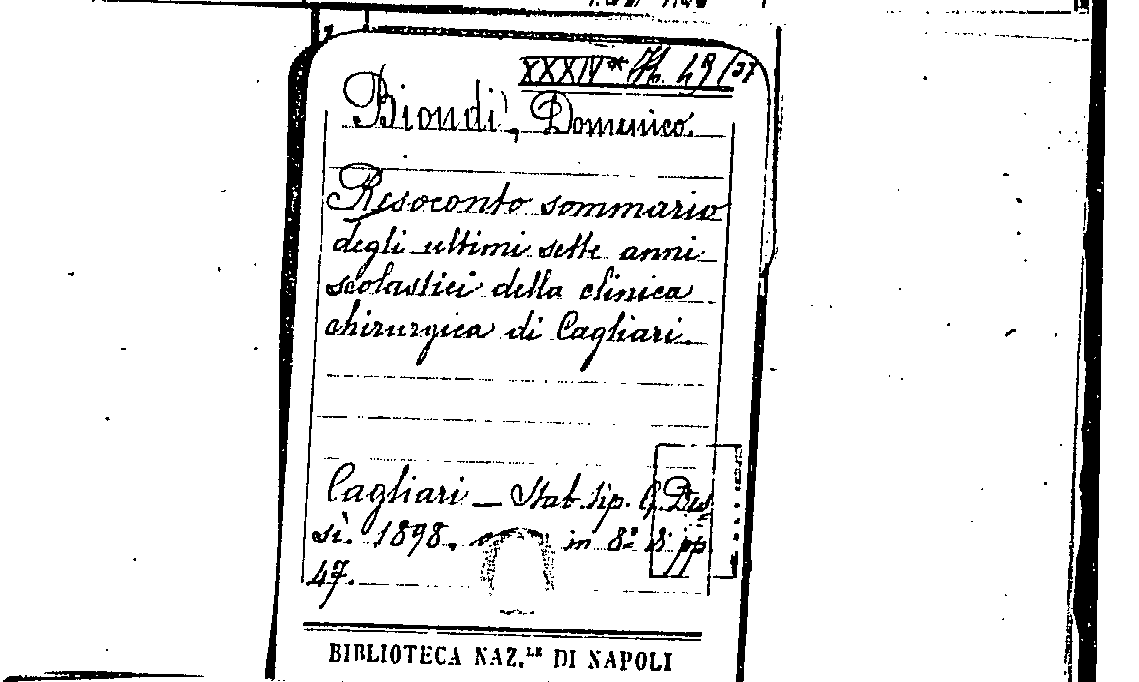 XXXIVᵃ H. 49/37
Biondi, Domenico.
Resoconto sommario
degli ultimi sette anni
scolastici della clinica
chirurgica di Cagliari.
Cagliari – Stab. tip. G. Des
sì. 1898. in 8º di pp
47.
BIBLIOTECA NAZ.LE DI NAPOLI